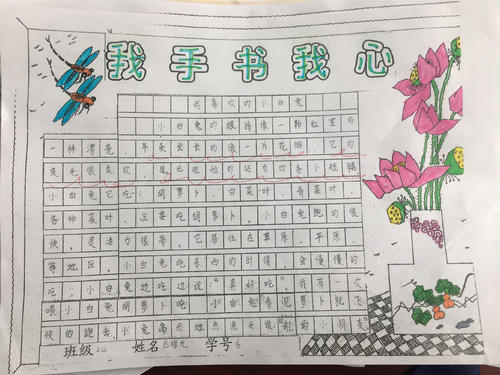 我手书我心
我喜欢的小白兔
小白兔的眼睛像一颗红宝石
一样漂亮,耳朵长长的像一片花瓣,它的
皮毛很柔软,尾巴短短的还有四条小短腿
小白兔它吃:胡萝卜、白菜叶、青菜叶、
各种菜叶。主要吃胡萝卜。小白兔跑的很
快,灵活力很高,它居住在草原、平原、
等地区。小白兔吃东西的时候,会慢慢的
吃,小白兔边吃边说“真好吃。”我有一次
喂小白兔胡萝卜吃,小白兔看见萝卜就飞
快的跑去,小兔高兴地点点头说:谢谢小朋友
班级 姓名 学号